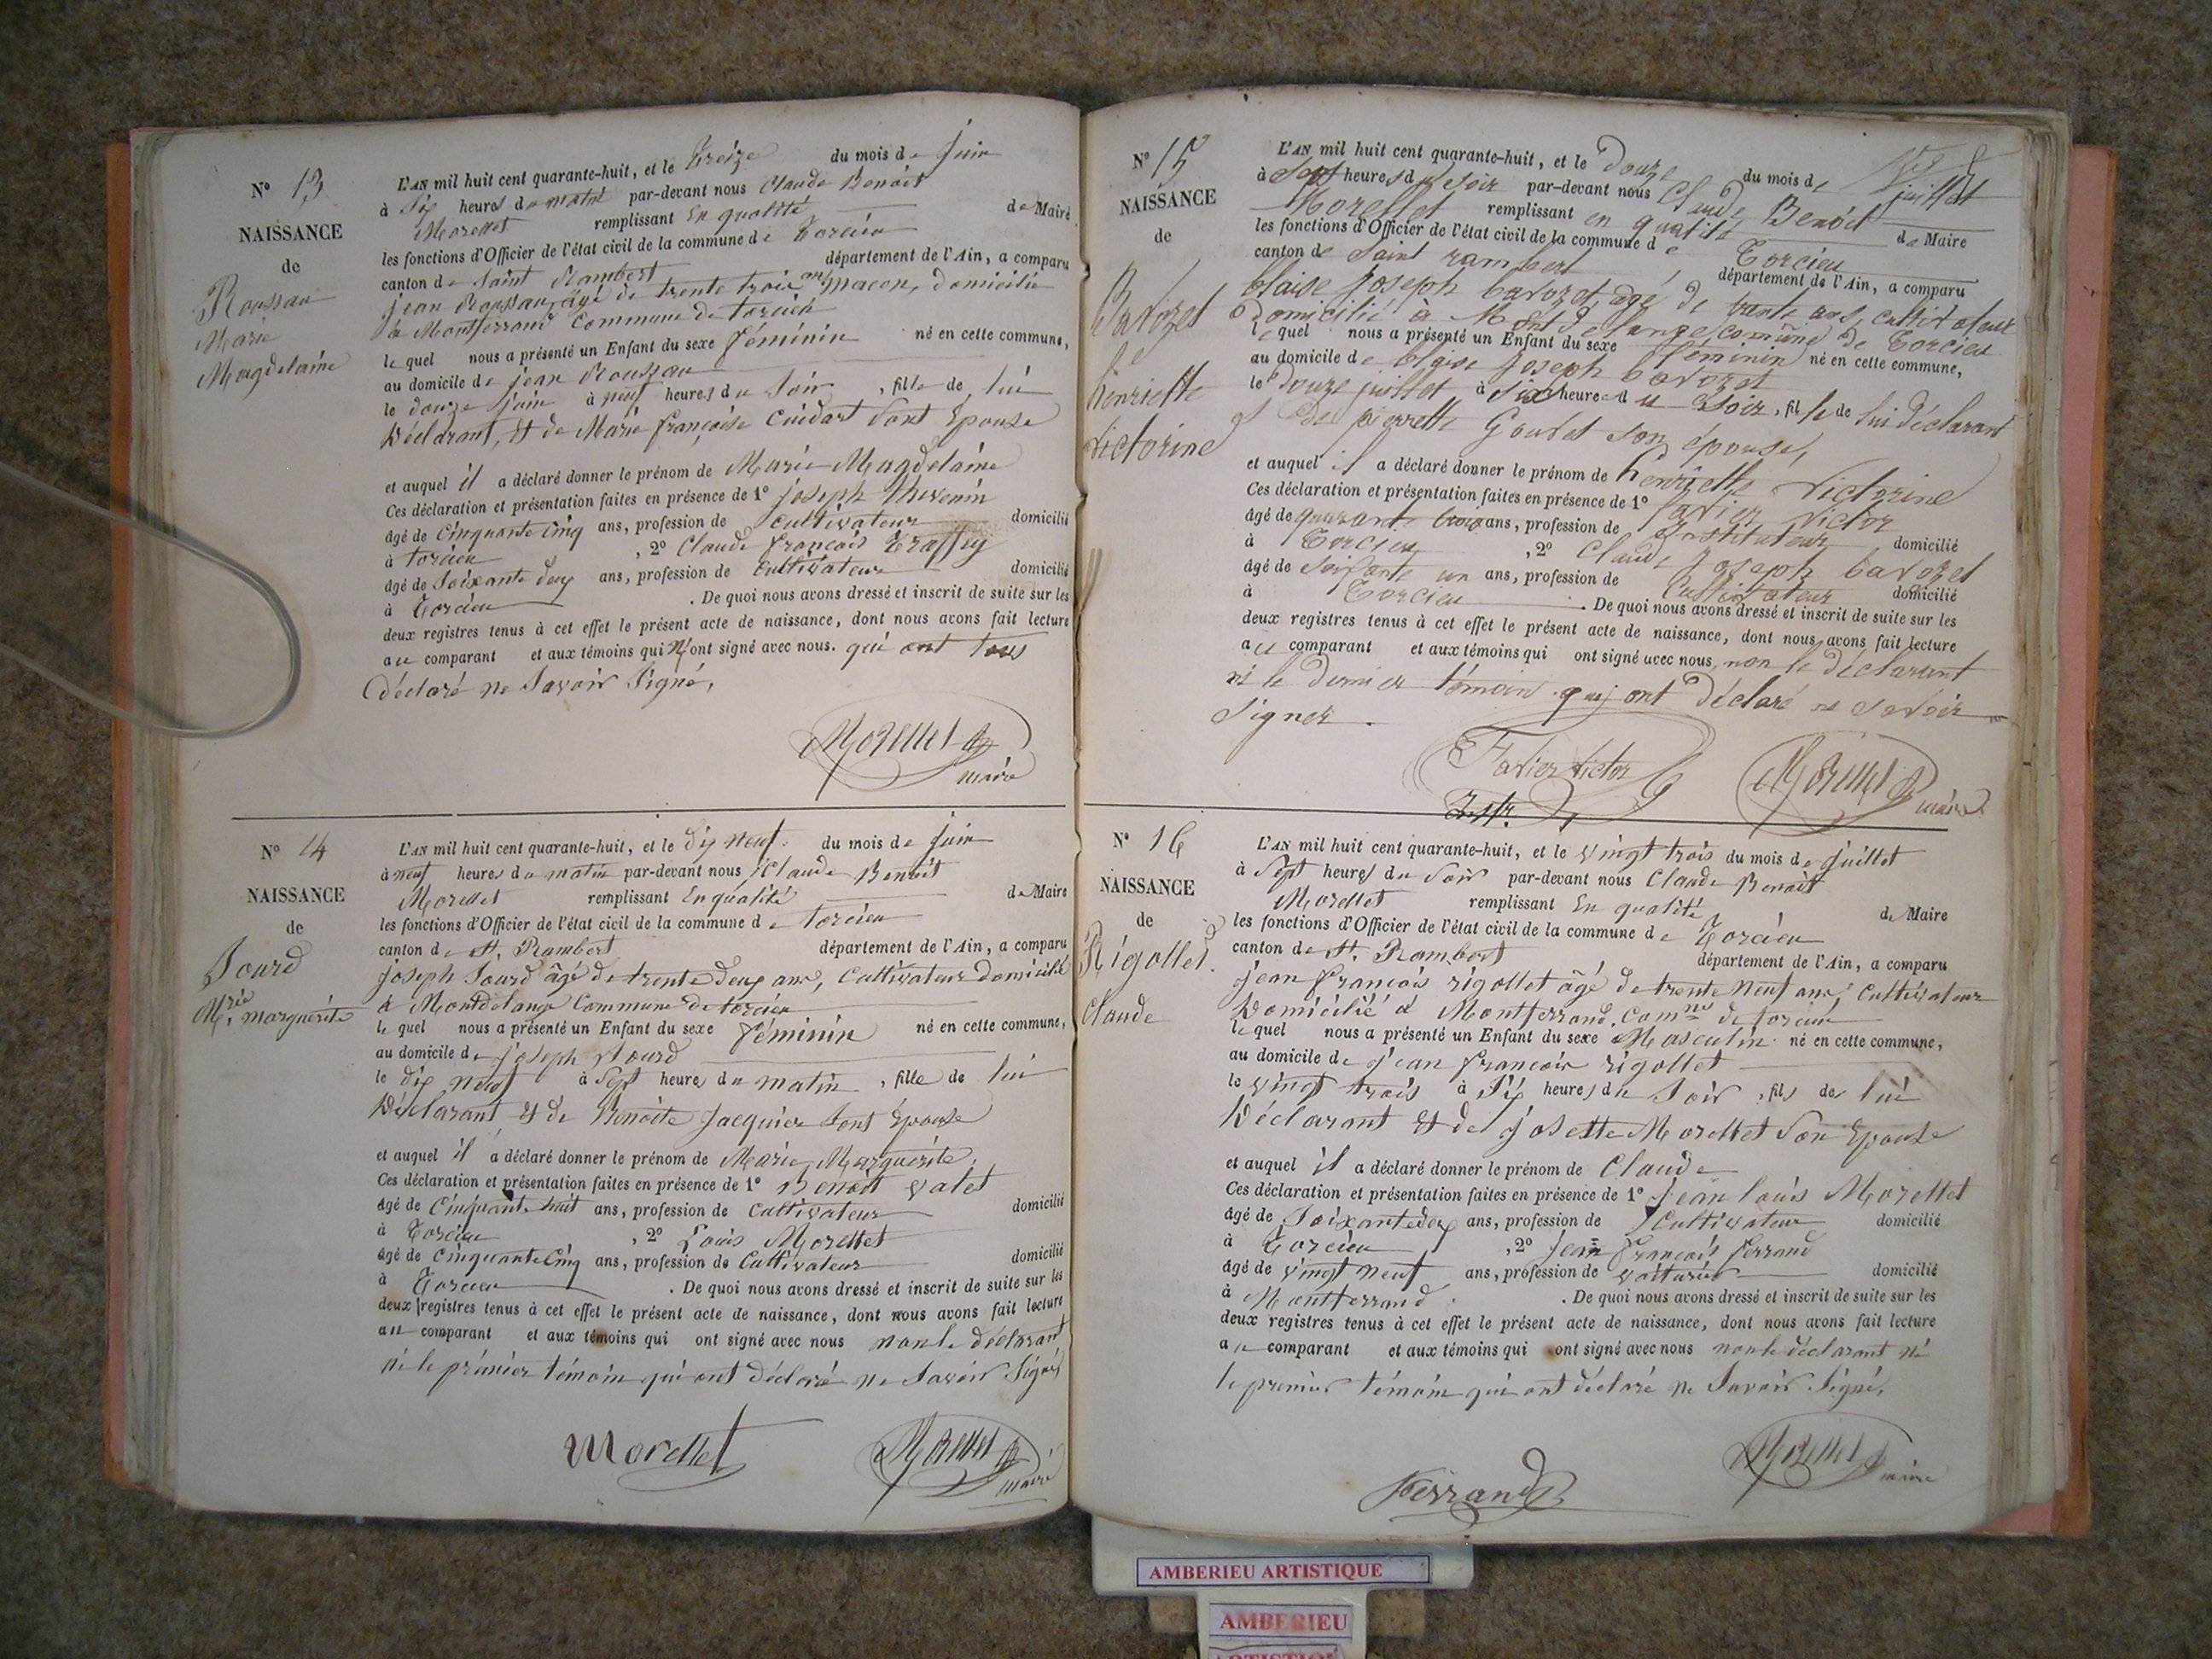 N° 13
NAISSANCE
de
Roussau
Marie
Magdelaine
L'AN mil huit cent quarante-huit, et le Treize du mois de juin
à Six heures du matin par-devant nous Claude Benoit
Morellet remplissant En qualité de Maire
les fonctions d'Officier de l'état civil de la commune de Torcieu
canton de Saint Rambert département de l'Ain, a comparu
jean Roussau, âgé de trente trois ans maçon, domicilié
à Montferrand Commune de torcieu
le quel nous a présenté un Enfant du sexe féminin né en cette commune,
au domicile de jean Roussau
le douze juin à neuf heures du Soir, fille de lui
Déclarant, et de Marie françoise Cuidart Sont Epouse
et auquel il a déclaré donner le prénom de Marie Magdelaine
Ces déclaration et présentation faites en présence de 1° joseph thevenin
âgé de Cinquante Cinq ans, profession de Cultivateur domicilié
à torcieu, 2° Claude françois Traffay
âgé de Soixante deux ans, profession de Cultivateur domicilié
à Torcieu. De quoi nous avons dressé et inscrit de suite sur les
deux registres tenus à cet effet le présent acte de naissance, dont nous avons fait lecture
au comparant et aux témoins qui n'ont signé avec nous. qui ont tous
déclaré ne Savoir Signé,
Morellet
maire
N° 14
NAISSANCE
de
Sourd
Mrie marguerite
L'AN mil huit cent quarante-huit, et le dix neuf. du mois de juin
à neuf heures du matin par-devant nous Claude Benoit
Morellet remplissant En qualité de Maire
les fonctions d'Officier de l'état civil de la commune de torcieu
canton de St. Rambert département de l'Ain, a comparu
joseph Sourd âgé de trente deux ans, Cultivateur domicilié
à Montdelange Commune de torcieu
le quel nous a présenté un Enfant du sexe féminin né en cette commune,
au domicile de joseph Sourd
le dix neuf à Sept heures du matin, fille de lui
Déclarant et de Benoite Jacquier Sont Epouse
et auquel il a déclaré donner le prénom de Marie Marguerite,
Ces déclaration et présentation faites en présence de 1° Benoit valet
âgé de Cinquante huit ans, profession de Cultivateur domicilié
à Torcieu, 2° Louis Morellet
âgé de Cinquante Cinq ans, profession de Cultivateur domicilié
à Torcieu. De quoi nous avons dressé et inscrit de suite sur les
deux registres tenus à cet effet le présent acte de naissance, dont nous avons fait lecture
au comparant et aux témoins qui ont signé avec nous non le déclarant
ni le premier témoin qui ont déclaré ne Savoir Signé,
Morellet
Morellet
maire
N° 15
NAISSANCE
de
Bavozet
henriette
victorine
L'AN mil huit cent quarante-huit, et le Douze du mois de juillet
à Sept heures du Soir par-devant nous Claude Benoit
Morellet remplissant en qualité de Maire
les fonctions d'Officier de l'état civil de la commune de Torcieu
canton de Saint rambert département de l'Ain, a comparu
blaise joseph bavozet, âgé de trente ans, cultivateur
Domicilié à Mont De lange commune de Torcieu
le quel nous a présenté un Enfant du sexe féminin né en cette commune,
au domicile de blaise joseph bavozet
le Douze juillet à Six heures du Soir, fille de lui déclarant
et De pierrette Goubet son épouse,
et auquel il a déclaré donner le prénom de henriette Victorine
Ces déclaration et présentation faites en présence de 1° favier Victor
âgé de quarante trois ans, profession de Instituteur domicilié
à Torcieu, 2° Claude Joseph bavozet
âgé de Soixante un ans, profession de Cultivateur domicilié
à Torcieu. De quoi nous avons dressé et inscrit de suite sur les
deux registres tenus à cet effet le présent acte de naissance, dont nous avons fait lecture
au comparant et aux témoins qui ont signé avec nous, non le déclarant
ni le dernier témoin qui ont Déclaré ne Savoir
Signer.
Favier Victor
Instr.
Morellet
maire
N° 16
NAISSANCE
de
Rigollet
Claude
L'AN mil huit cent quarante-huit, et le vingt trois du mois de juillet
à Sept heures du Soir par-devant nous Claude Benoit
Morellet remplissant En qualité de Maire
les fonctions d'Officier de l'état civil de la commune de Torcieu
canton de St. Rambert département de l'Ain, a comparu
jean françois rigollet âgé de trente neuf ans, Cultivateur
Domicilié à Montferrand. Comne de torcieu
le quel nous a présenté un Enfant du sexe Masculin né en cette commune,
au domicile de jean françois rigollet
le vingt trois à Six heures du Soir, fils de lui
Déclarant et de josette Morellet Son Epouse
et auquel il a déclaré donner le prénom de Claude
Ces déclaration et présentation faites en présence de 1° jean louis Morellet
âgé de Soixante deux ans, profession de Cultivateur domicilié
à Torcieu, 2° Jean François ferrand
âgé de vingt neuf ans, profession de voiturier domicilié
à Montferrand. De quoi nous avons dressé et inscrit de suite sur les
deux registres tenus à cet effet le présent acte de naissance, dont nous avons fait lecture
au comparant et aux témoins qui ont signé avec nous non le déclarant ni
le premier témoin qui ont déclaré ne Savoir Signé,
Ferrand
Morellet
maire
AMBERIEU ARTISTIQUE
AMBERIEU
ARTISTIQUE